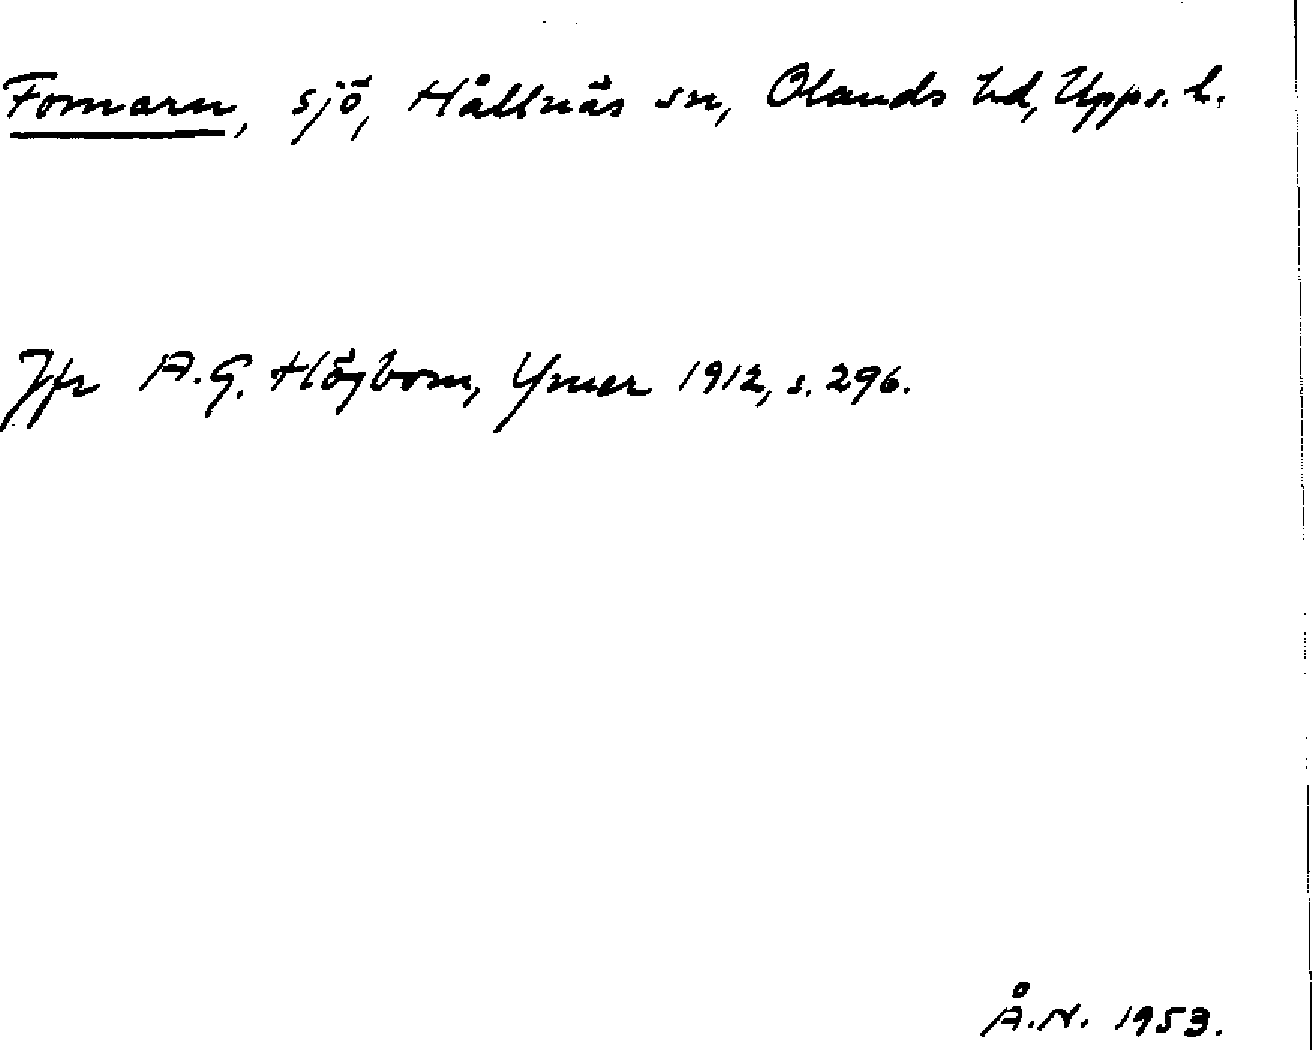 Fornaru, sjö, Hållnäs sn, Olands hd, Upps. l.
Jfr A.G. Högbom, Ymer 1912, s. 296.
Å.N. 1953.